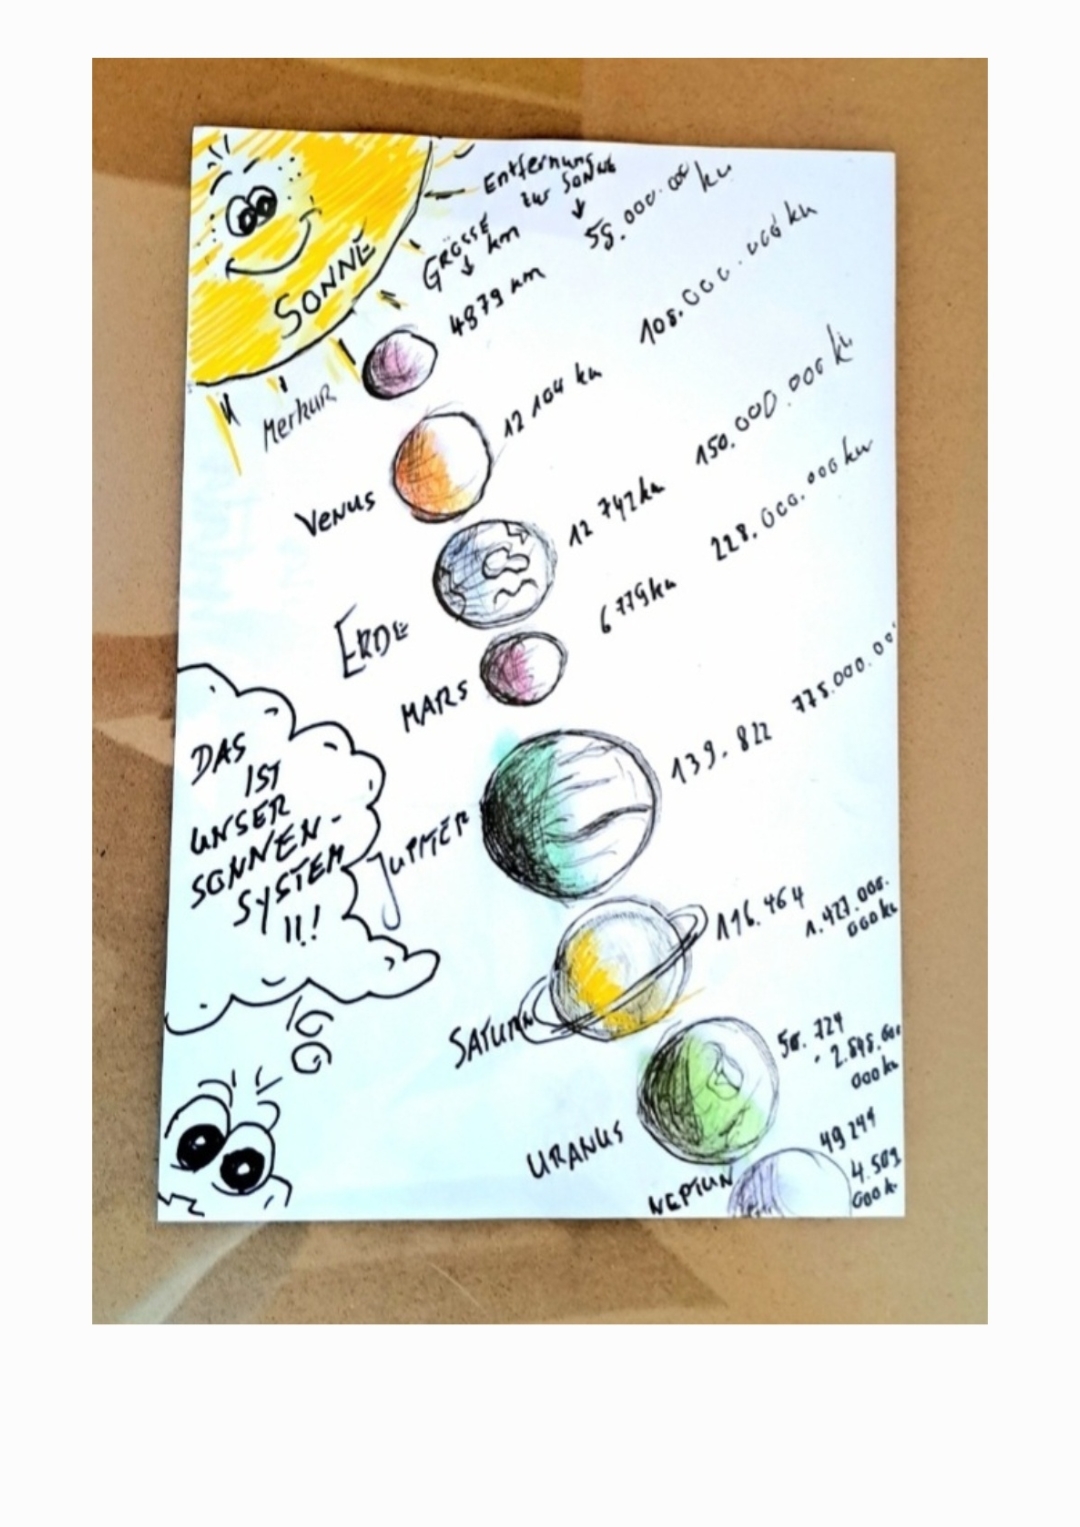 SONNE
Entfernung
zur SONNE
GRÖSSE
km
4879 km
58.000.000 km
Merkur
12 104 km
108.000.000 km
VENUS
12 742 km
150.000.000 km
ERDE
6 779 km
228.000.000 km
MARS
139.822
778.000.00
JUPITER
DAS
IST
UNSER
SONNEN-
SYSTEM
!!!
116.464
1.427.000.
000 km
SATURN
50.724
000 km
URANUS
49 244
4.509
000 k
NEPTUN